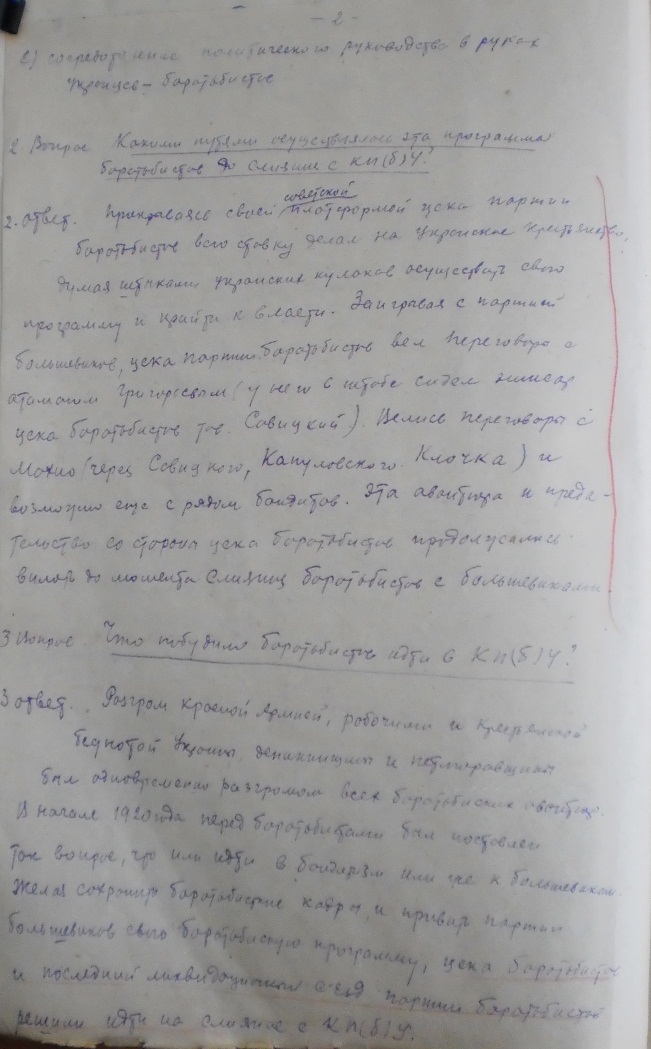 - 2 -
е) сосредоточение политического руководства в руках
Украинцев - боротьбистов
2. Вопрос Какими путями осуществлялась эта программа
боротьбистов до слияние с КП(б)У?
2. ответ. Прикрываясь своей советской платформой цека партии
боротьбистов всю ставку делал на украинское крестьянство,
думая штыками украинских кулаков осуществить свою
программу и прийти к власти. Заигрывая с партией
большевиков, цека партии боротьбистов вел переговоры с
атаманом Григорьевым (у него в штабе сидел
цека боротьбистов тов. Савицкий). Велись переговоры с
Махно (через Савицкого, Капуловского Клочка) и
возможно еще с рядом бандитов. Эта авантюра и преда-
тельство со стороны цека боротьбистов продолжались
вплоть до момента слияния боротьбистов с большевиками
3 Вопрос. Что побудило боротьбистов идти в КП(б)У?
3 ответ. Разгром красной Армией, рабочими и крестьянской
беднотой Украины, деникинщины и петлюровщины
был одновременно разгромом всех боротьбистских авантюр.
В начале 1920 года перед боротьбистами был поставлен
так вопрос, что или идти в бандитизм или же к большевикам.
Желая сохранить боротьбистские кадры, и привить партии
большевиков свою боротьбискую программу, цека боротьбистов
и последний ликвидационный с'езд партии боротьбистов
решили идти на слияние с КП(б)У.